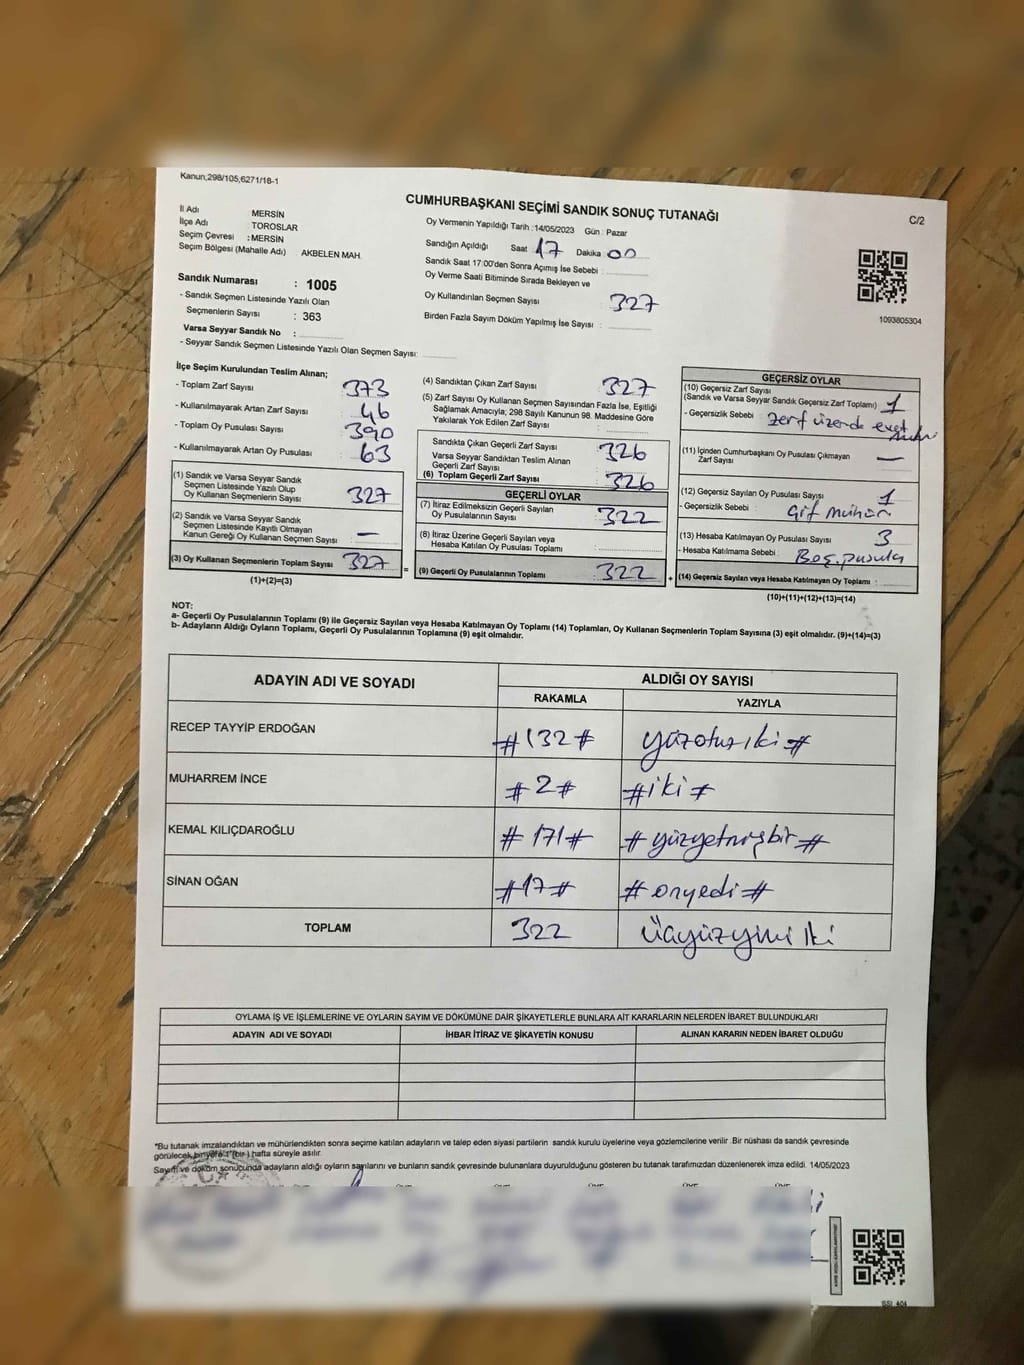 Kanun,298/105,6271/18-1
CUMHURBAŞKANI SEÇİMİ SANDIK SONUÇ TUTANAĞI
C/2
İl Adı : MERSİN
İlçe Adı : TOROSLAR
Seçim Çevresi : MERSİN
Seçim Bölgesi (Mahalle Adı) : AKBELEN MAH.
Sandık Numarası : 1005
- Sandık Seçmen Listesinde Yazılı Olan
Seçmenlerin Sayısı : 363
Varsa Seyyar Sandık No :
- Seyyar Sandık Seçmen Listesinde Yazılı Olan Seçmen Sayısı:
Oy Vermenin Yapıldığı Tarih :14/05/2023 Gün : Pazar
Sandığın Açıldığı Saat 17 Dakika 00
Sandık Saat 17:00'den Sonra Açımış İse Sebebi :
Oy Verme Saati Bitiminde Sırada Bekleyen ve
Oy Kullandırılan Seçmen Sayısı : 327
Birden Fazla Sayım Döküm Yapılmış İse Sayısı :
1093805304
İlçe Seçim Kurulundan Teslim Alınan;
- Toplam Zarf Sayısı 373
- Kullanılmayarak Artan Zarf Sayısı : 46
- Toplam Oy Pusulası Sayısı : 390
- Kullanılmayarak Artan Oy Pusulası : 63
(1) Sandık ve Varsa Seyyar Sandık
Seçmen Listesinde Yazılı Olup
Oy Kullanan Seçmenlerin Sayısı : 327
(2) Sandık ve Varsa Seyyar Sandık
Seçmen Listesinde Kayıtlı Olmayan
Kanun Gereği Oy Kullanan Seçmen Sayısı : —
(3) Oy Kullanan Seçmenlerin Toplam Sayısı : 327
(1)+(2)=(3)
(4) Sandıktan Çıkan Zarf Sayısı : 327
(5) Zarf Sayısı Oy Kullanan Seçmen Sayısından Fazla İse, Eşitliği
Sağlamak Amacıyla; 298 Sayılı Kanunun 98. Maddesine Göre
Yakılarak Yok Edilen Zarf Sayısı :
Sandıkta Çıkan Geçerli Zarf Sayısı : 326
Varsa Seyyar Sandıktan Teslim Alınan
Geçerli Zarf Sayısı :
(6) Toplam Geçerli Zarf Sayısı : 326
GEÇERLİ OYLAR
(7) İtiraz Edilmeksizin Geçerli Sayılan
Oy Pusulalarının Sayısı : 322
(8) İtiraz Üzerine Geçerli Sayılan veya
Hesaba Katılan Oy Pusulası Toplamı :
= (9) Geçerli Oy Pusulalarının Toplamı : 322 +
GEÇERSİZ OYLAR
(10) Geçersiz Zarf Sayısı
(Sandık ve Varsa Seyyar Sandık Geçersiz Zarf Toplamı) : 1
- Geçersizlik Sebebi : zarf üzerde evet
(11) İçinden Cumhurbaşkanı Oy Pusulası Çıkmayan
Zarf Sayısı : —
(12) Geçersiz Sayılan Oy Pusulası Sayısı : 1
- Geçersizlik Sebebi : çift mühür
(13) Hesaba Katılmayan Oy Pusulası Sayısı : 3
- Hesaba Katılmama Sebebi : Boş pusula
(14) Geçersiz Sayılan veya Hesaba Katılmayan Oy Toplamı :
(10)+(11)+(12)+(13)=(14)
NOT:
a- Geçerli Oy Pusulalarının Toplamı (9) ile Geçersiz Sayılan veya Hesaba Katılmayan Oy Toplamı (14) Toplamları, Oy Kullanan Seçmenlerin Toplam Sayısına (3) eşit olmalıdır. (9)+(14)=(3)
b- Adayların Aldığı Oyların Toplamı, Geçerli Oy Pusulalarının Toplamına (9) eşit olmalıdır.
ADAYIN ADI VE SOYADI ALDIĞI OY SAYISI
RAKAMLA YAZIYLA
RECEP TAYYİP ERDOĞAN #132# yüzotuziki#
MUHARREM İNCE #2# #iki#
KEMAL KILIÇDAROĞLU #171# #yüzyetmişbir#
SİNAN OĞAN #17# #onyedi#
TOPLAM 322 Üçyüzyirmi iki
OYLAMA İŞ VE İŞLEMLERİNE VE OYLARIN SAYIM VE DÖKÜMÜNE DAİR ŞİKAYETLERLE BUNLARA AİT KARARLARIN NELERDEN İBARET BULUNDUKLARI
ADAYIN ADI VE SOYADI İHBAR İTİRAZ VE ŞİKAYETİN KONUSU ALINAN KARARIN NEDEN İBARET OLDUĞU
*Bu tutanak imzalandıktan ve mühürlendikten sonra seçime katılan adayların ve talep eden siyasi partilerin sandık kurulu üyelerine veya gözlemcilerine verilir. Bir nüshası da sandık çevresinde
görülecek bir yere 1 (bir) hafta süreyle asılır.
Sayım ve döküm sonucunda adayların aldığı oyların sayılarını ve bunların sandık çevresinde bulunanlara duyurulduğunu gösteren bu tutanak tarafımızdan düzenlenerek imza edildi. 14/05/2023